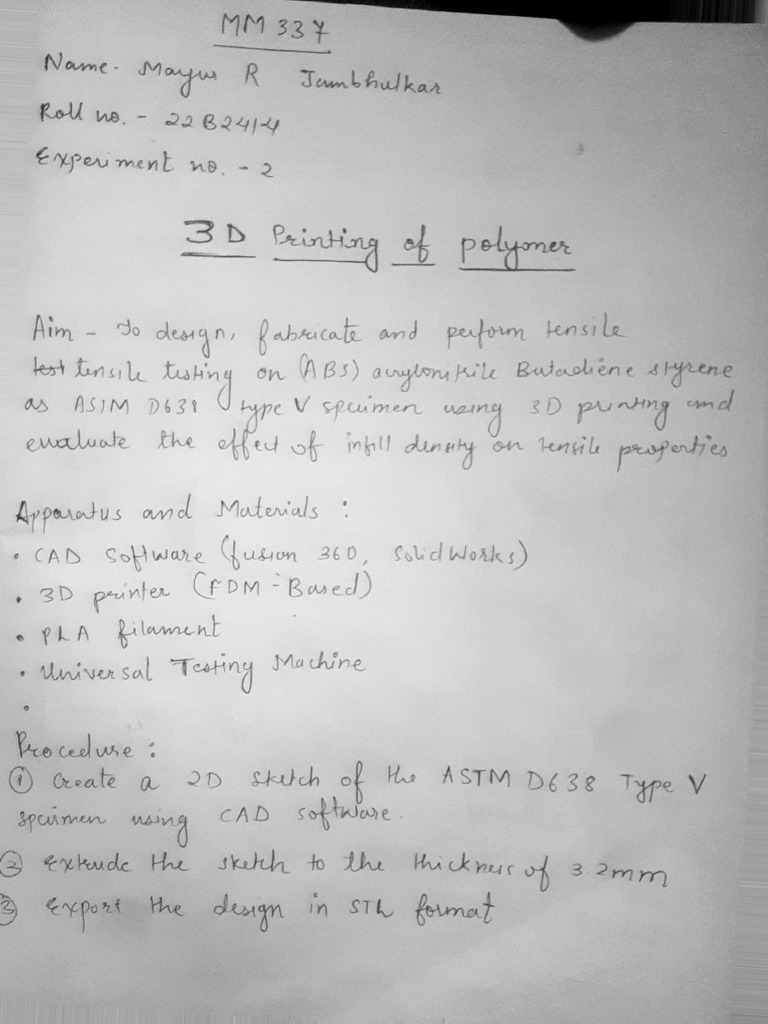 MM 337
Name- Mayur R Jambhulkar
Roll no. - 22B2414
Experiment no. - 2
3D Printing of polymer
Aim - To design, fabricate and perform tensile
test tensile testing on (ABS) acrylonitrile Butadiene styrene
as ASTM D638 type V specimen using 3D printing and
evaluate the effect of infill density on tensile properties
Apparatus and Materials :
• CAD Software (fusion 360, SolidWorks)
• 3D printer (FDM-Based)
• PLA filament
• Universal Testing Machine
•
Procedure :
① Create a 2D sketch of the ASTM D638 Type V
specimen using CAD software.
② Extrude the sketch to the thickness of 3.2mm
③ Export the design in STL format